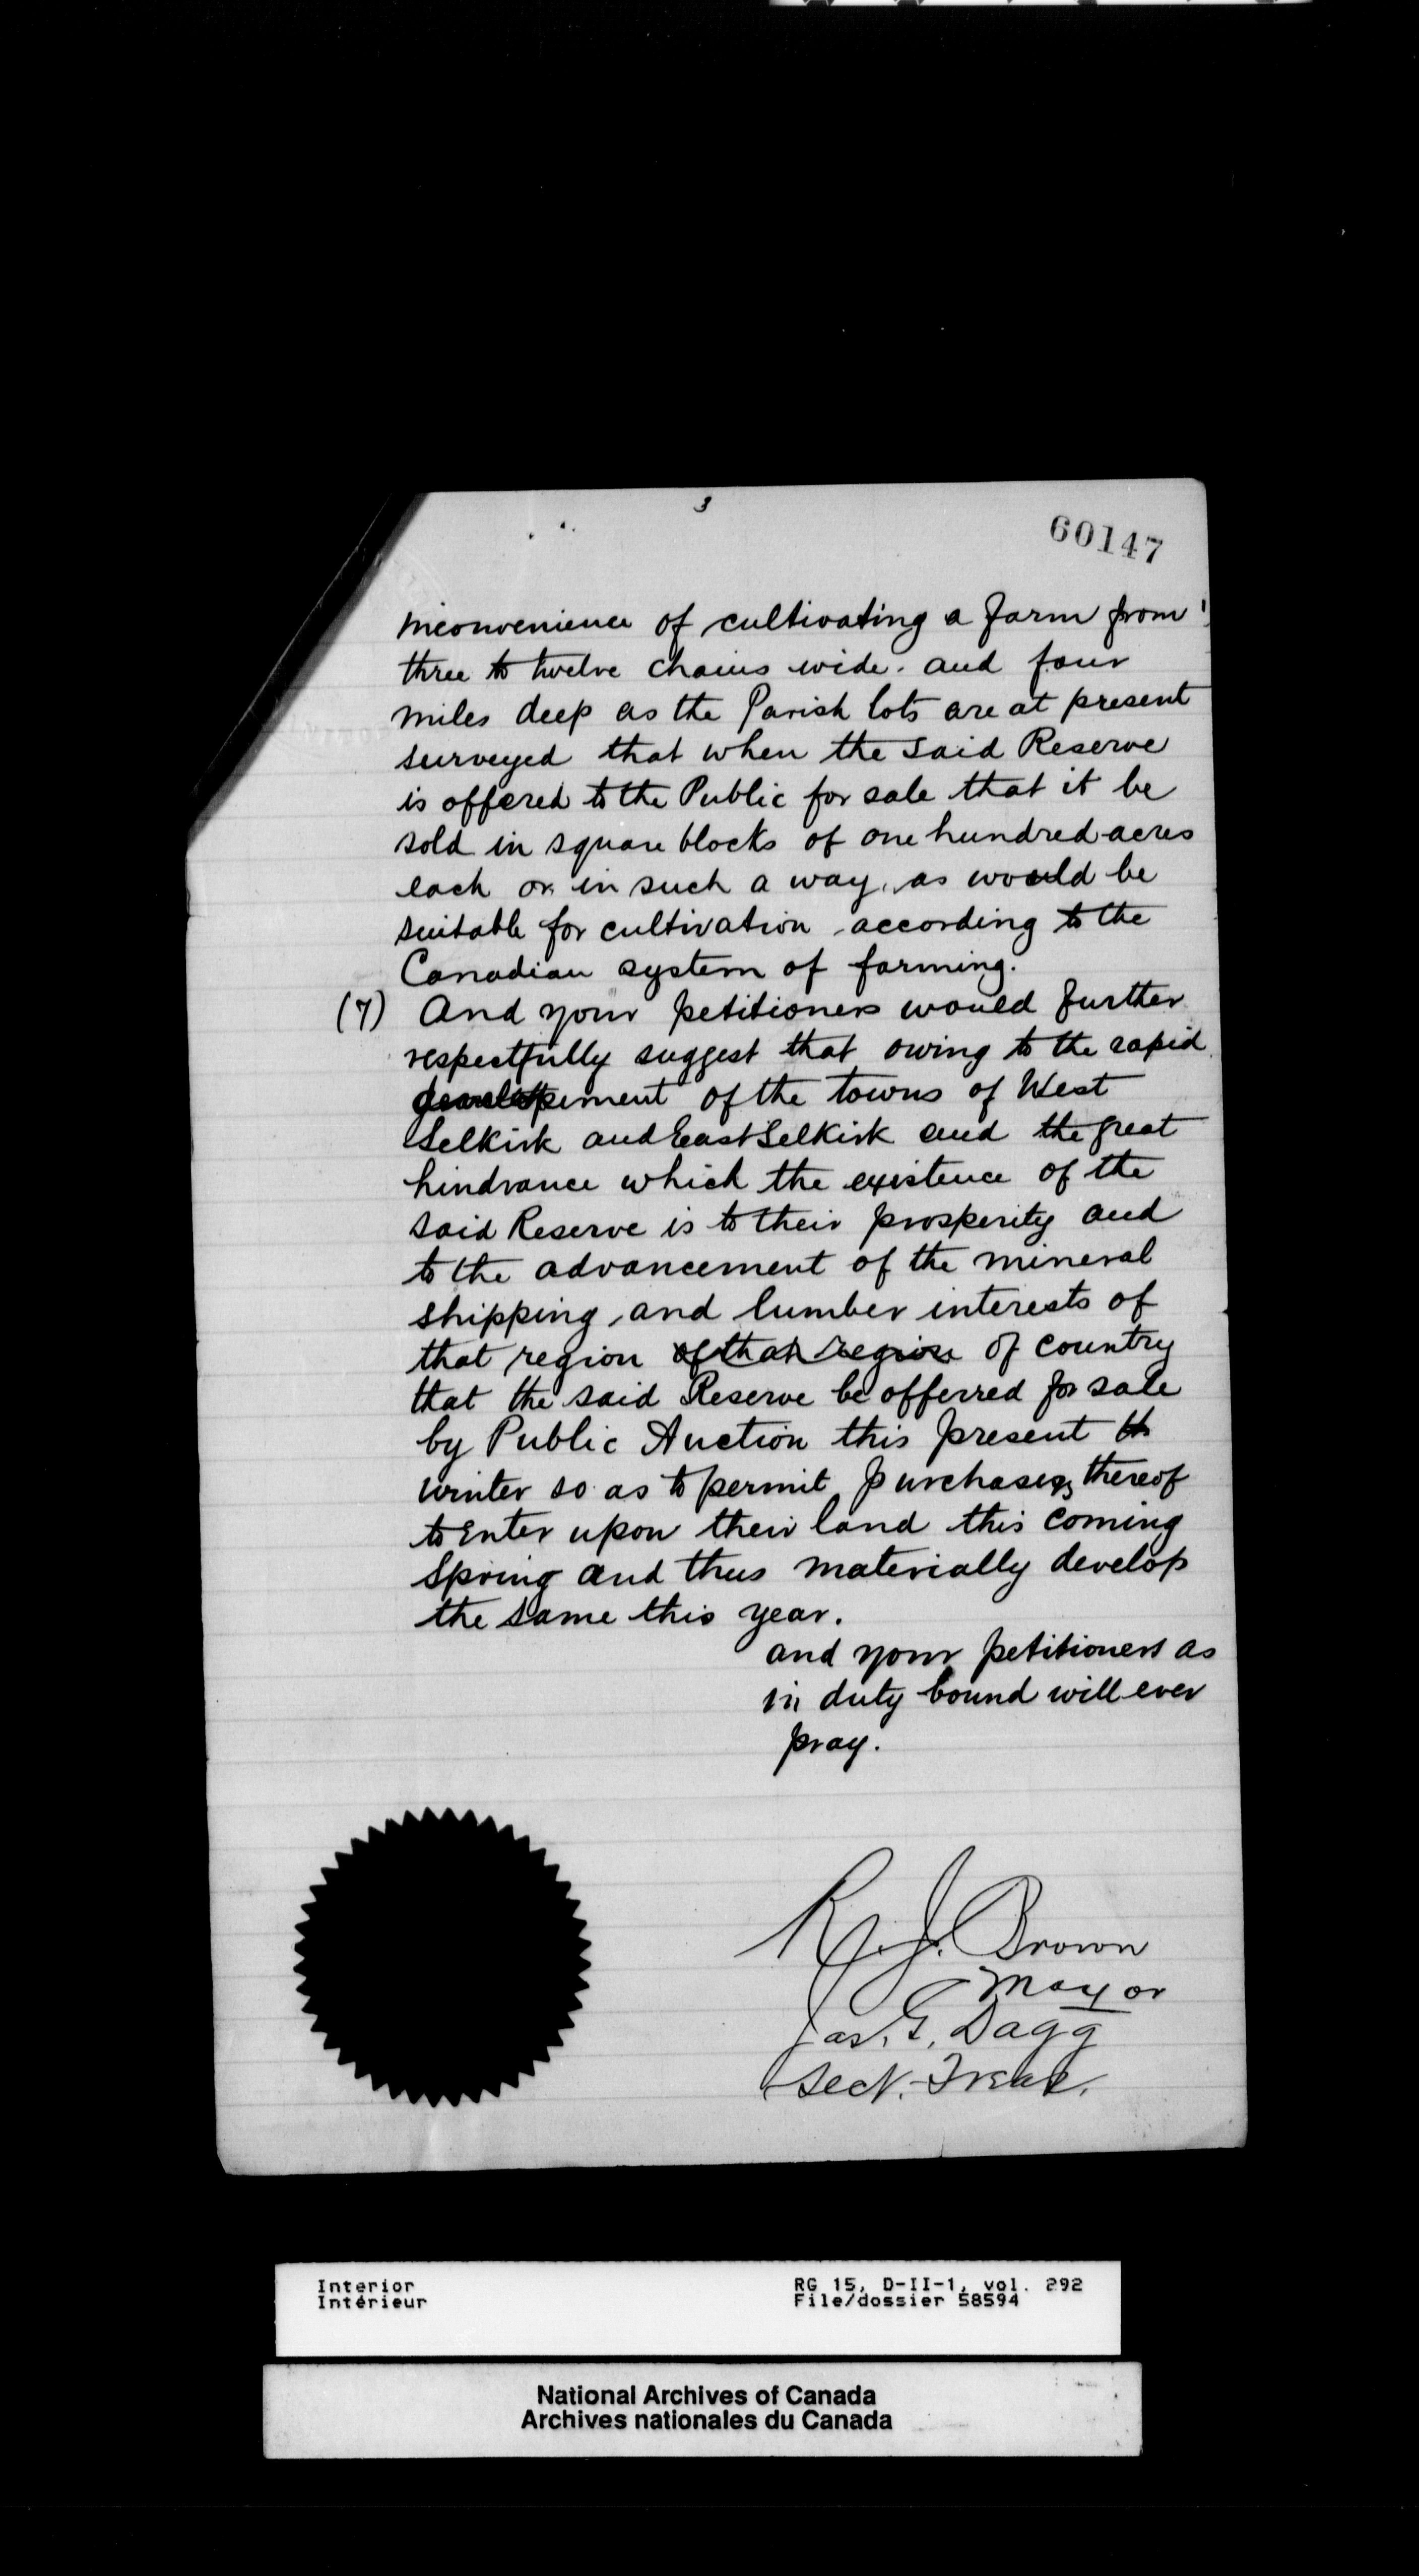 3
60147
inconvenience of cultivating a farm from
three to twelve chains wide. and four
miles deep as the Parish lots are at present
surveyed that when the said Reserve
is offered to the Public for sale that it be
sold in square blocks of one hundred acres
each or in such a way, as would be
suitable for cultivation according to the
Canadian system of farming.
(7) And your petitioners would further
respectfully suggest that owing to the rapid
developement of the towns of West
Selkirk and East Selkirk and the great
hindrance which the existence of the
said Reserve is to their prosperity and
to the advancement of the mineral
shipping, and lumber interests of
that region of that region of country
that the said Reserve be offerred for sale
by Public Auction this present
winter so as to permit purchasers thereof
to Enter upon their land this coming
Spring and thus materially develop
the same this year.
and your petitioners as
in duty bound will ever
pray.
R. J. Brown
Mayor
Jas. G. Dagg
Sect. Treas.
Interior
Intérieur
RG 15, D-II-1, vol. 292
File/dossier 58594
National Archives of Canada
Archives nationales du Canada